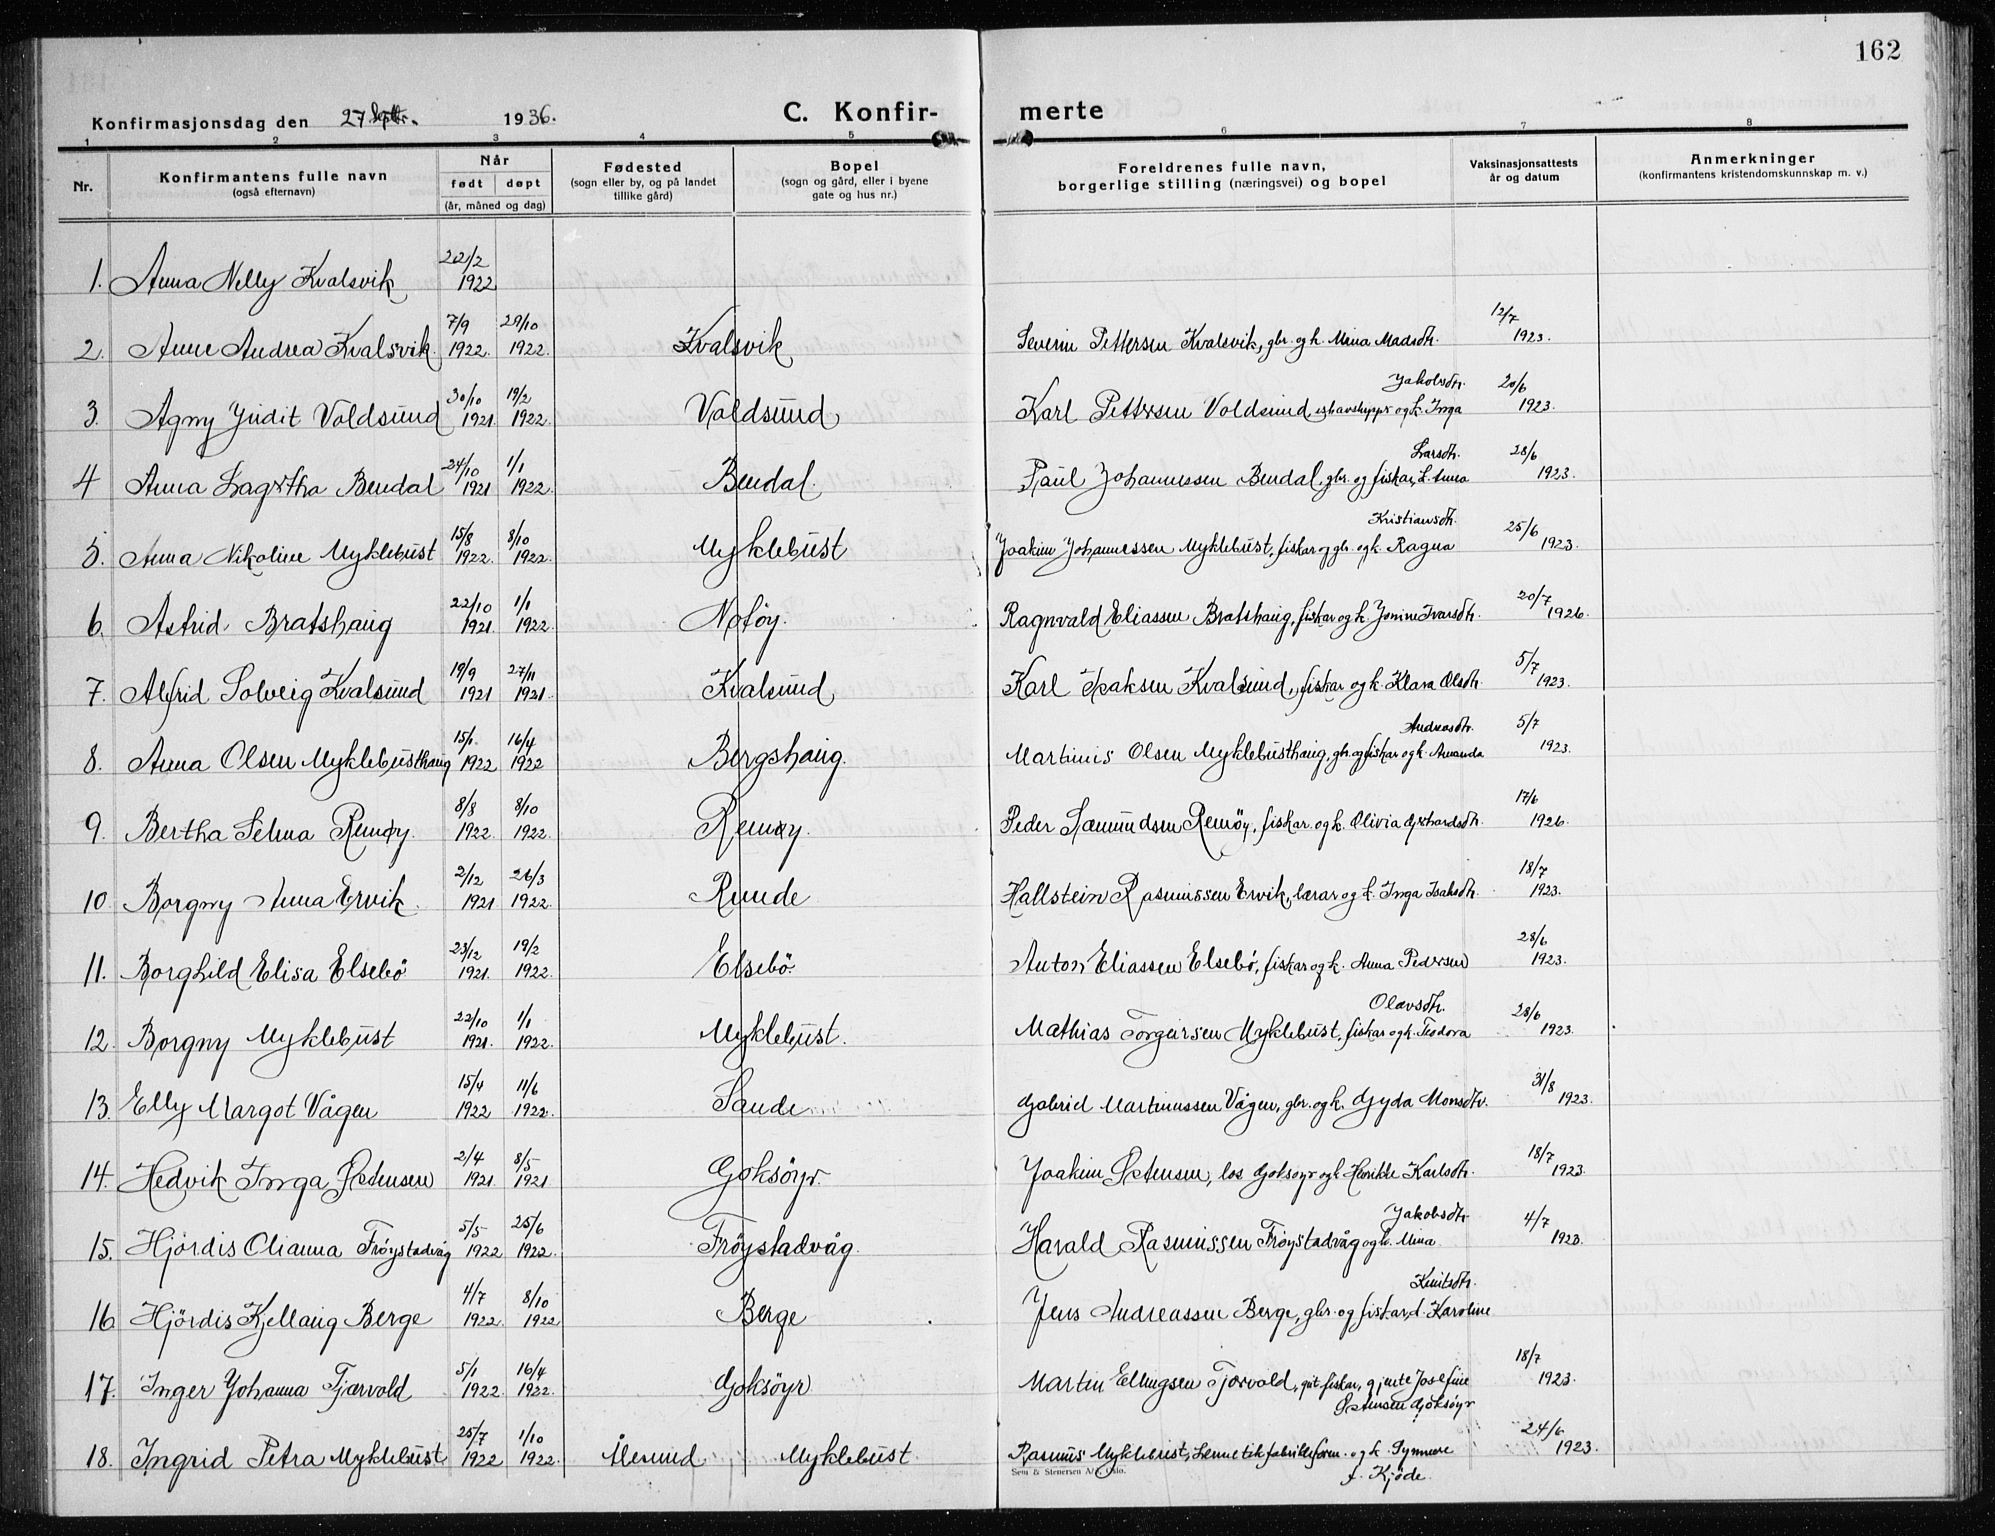 162
Konfirmasjonsdag den 27 Septr. 1936.
C. Konfirmerte
1 2 3 4 5 6 7 8
Nr. Konfirmantens fulle navn (også efternavn) Når født døpt (år, måned og dag) Fødested (sogn eller by, og på landet tillike gård) Bopel (sogn og gård, eller i byene gate og hus nr.) Foreldrenes fulle navn, borgerlige stilling (næringsvei) og bopel Vaksinasjonsattests år og datum Anmerkninger (konfirmantens kristendomskunnskap m. v.)
1. Anna Nelly Kvalsvik 22/2 1922
2. Anne Andrea Kvalsvik 7/9 1922. 29/10 1922. Kvalsvik Severin Pettersen Kvalsvik, gbr. og k. Mina Madsdtr. 12/7 1923.
3. Agny Judit Voldsund 30/10 1921 19/2 1922. Voldsund Karl Pettersen Voldsund ishavsskippr og k. Inga Jakobsdtr. 20/6 1923.
4 Anna Lagertha Bendal 24/10 1921 1/1 1922. Bendal. Paul Johannessen Bendal, gbr. og fiskar, k. Anna Larsdtr. 28/6 1923.
5. Anna Nikoline Myklebust 15/8 1922. 8/10 1922. Myklebust Joakim Johannessen Myklebust, fiskar og gbr. og k. Ragna Kristiansdtr. 25/6 1923.
6. Astrid Bratshaug 22/10 1921. 1/1 1922. Notøy. Ragnvald Eliassen Bratshaug, fiskar og k. Jonine Ivarsdtr. 20/7 1926.
7. Alfrid Solveig Kvalsund 19/9 1921 27/11 1921. Kvalsund Karl Isaksen Kvalsund, fiskar og k. Klara Olsdtr. 5/7 1923.
8. Anna Olsen Myklebusthaug 15/1. 1922 16/4 1922 Bergshaug. Martinus Olsen Myklebusthaug, gbr. og fiskar og k. Amanda Andreasdtr. 5/7 1923.
9. Bertha Selma Remøy. 8/8 1922. 8/10 1922. Remøy Peder Samundsen Remöy, fiskar og k. Olivia Gerhardsdtr. 17/6 1926.
10. Borgny Anna Ervik. 2/12 1921 26/3 1922. Runde Hallstein Rasmussen Ervik, lærar og k. Inga Isaksdtr. 18/7 1923.
11. Borghild Elisa Elsebö 23/12 1921. 19/2 1922. Elsebö Anton Eliassen Elsebö, fiskar og k. Anna Pedersen 28/6 1923.
12. Borgny Myklebust 22/10 1921. 1/1 1922. Myklebust. Mathias Torgersen Myklebust, fiskar og k. Teodora Olavsdtr. 28/6 1923.
13. Elly Margot Vågen 15/4 1922 11/6 1922. Sande Gabriel Martinussen Vågen, gbr. og k. Gyda Monsdtr. 31/8 1923.
14. Hedvik Inga Østensen 2/4 1921. 8/5 1921 Goksöyr. Joakim Østensen, los Goksøyr og k. Henrikke Karlsdtr. 18/7 1923.
15. Hjördis Olianna Fröystadvåg 5/5 1922 25/6 1922. Fröystadvåg Harald Rasmussen Fröystadvåg og k. Mina Jakobsdtr. 4/7 1923.
16 Hjördis Kjellaug Berge 4/7 1922. 8/10 1922 Berge Jens Andreassen Berge, gbr. og fiskar, k. Karoline Knutsdtr.
17. Inger Johanna Tjærvold 5/1 1922. 16/4 1922. Goksöyr Martin Ellingsen Tjærvold, gut fiskar, gjente Josefine Østensen Goksöyr 18/7 1923.
18. Ingrid Petra Myklebust 25/7 1922 1/10 1922. Ålesund Myklebust Rasmus Myklebust, Hermetikfabrikkforen. og k. f. Kjøde. 24/6 1923.
Sem & Stenersen A/S, Oslo.